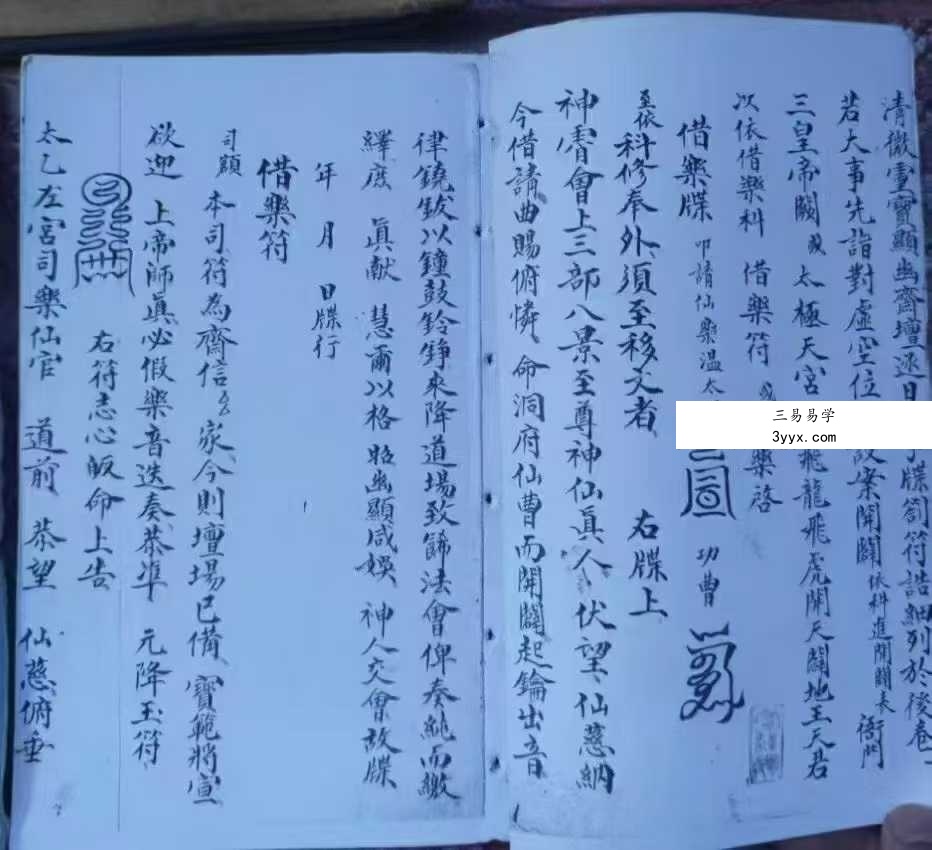 清微靈寶顯幽齋壇逐日
牒劄符誥細列於後卷
若大事先詣對虛空位
案開闢依科進開闢表 衙門
三皇帝闕或太極天宮
飛龍飛虎開天闢地王天君
次依借樂科 借樂符 或
樂啓
借樂牒 叩請仙樂温太
功曹
至依科修奉外須至移文者 右牒上
神霄會上三部八景至尊神仙眞人伏望仙慈納
今借請曲賜俯憐命洞府仙曹而開闢起鑰出音
律鐃鈸以鐘鼓鈴錚來降道場致餙法會俾奏純而繳
繹度 眞献 慧爾以格昭幽顯咸娛 神人交會故牒
年 月 日牒行
借樂符
司額 本司符為齋信 家今則壇場已備寶範將宣
欲迎 上帝師眞必假樂音迭奏恭凖 元降玉符
右符志心皈命上告
太乙左宮司樂仙官 道前 恭望 仙慈俯垂
三易易学
3yyx.com